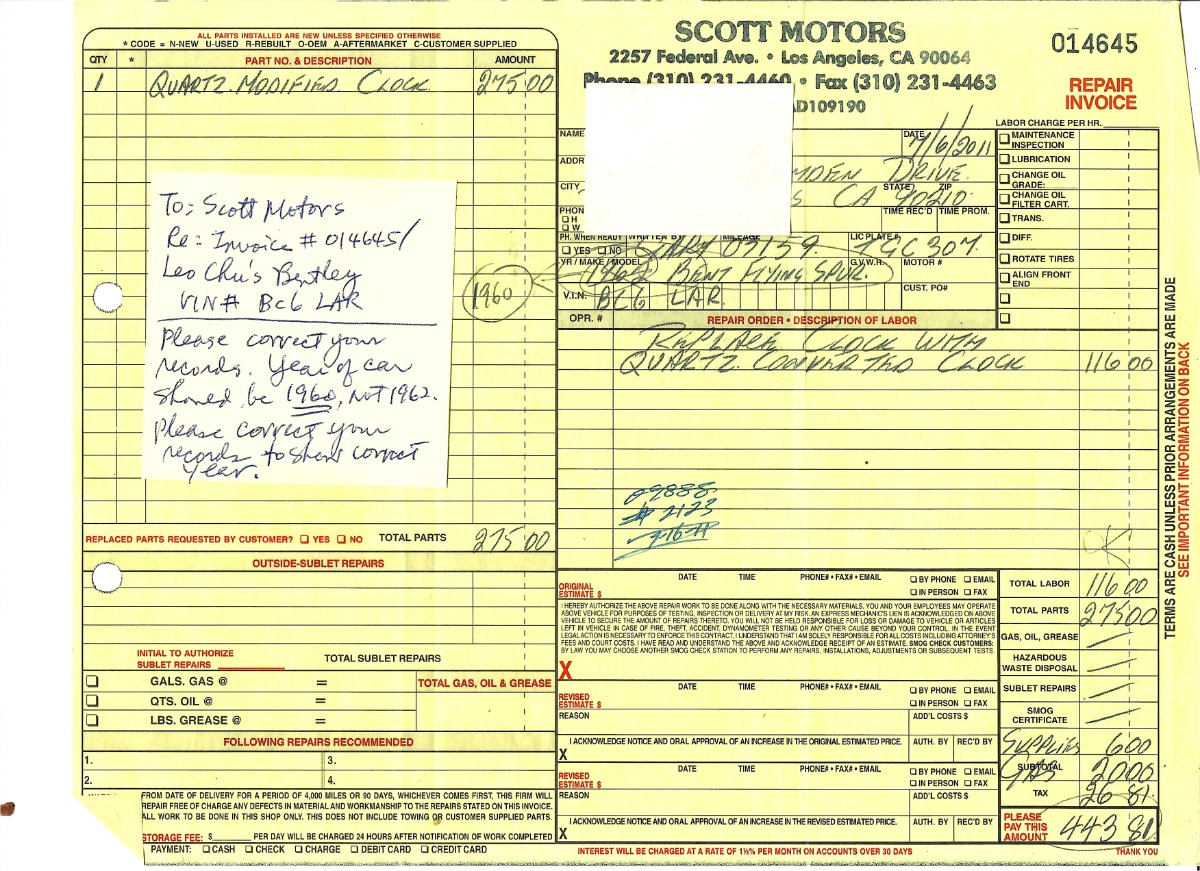 ALL PARTS INSTALLED ARE NEW UNLESS SPECIFIED OTHERWISE
* CODE = N-NEW U-USED R-REBUILT O-OEM A-AFTERMARKET C-CUSTOMER SUPPLIED
QTY * PART NO. & DESCRIPTION AMOUNT
1 QUARTZ MODIFIED CLOCK 275 00
To: Scott Motors
Re: Invoice # 014645/
Leo Chu's Bentley
VIN# BC6 LAR
Please correct your
records. Year of car
should be 1960, not 1962.
Please correct your
records to show correct
year.
REPLACED PARTS REQUESTED BY CUSTOMER? YES NO TOTAL PARTS 275 00
OUTSIDE-SUBLET REPAIRS
INITIAL TO AUTHORIZE
SUBLET REPAIRS TOTAL SUBLET REPAIRS
GALS. GAS @ = TOTAL GAS, OIL & GREASE
QTS. OIL @ =
LBS. GREASE @ =
FOLLOWING REPAIRS RECOMMENDED
1. 3.
2. 4.
FROM DATE OF DELIVERY FOR A PERIOD OF 4,000 MILES OR 90 DAYS, WHICHEVER COMES FIRST, THIS FIRM WILL
REPAIR FREE OF CHARGE ANY DEFECTS IN MATERIAL AND WORKMANSHIP TO THE REPAIRS STATED ON THIS INVOICE.
ALL WORK TO BE DONE IN THIS SHOP ONLY. THIS DOES NOT INCLUDE TOWING OR CUSTOMER SUPPLIED PARTS.
STORAGE FEE: $ PER DAY WILL BE CHARGED 24 HOURS AFTER NOTIFICATION OF WORK COMPLETED
PAYMENT: CASH CHECK CHARGE DEBIT CARD CREDIT CARD
SCOTT MOTORS
2257 Federal Ave. • Los Angeles, CA 90064
Phone (310) 231-4460 • Fax (310) 231-4463
AD109190
014645
REPAIR
INVOICE
LABOR CHARGE PER HR.
NAME DATE 7/6/2011
ADDR MDEN DRIVE
CITY S STATE CA ZIP 90210
PHON H W TIME REC'D TIME PROM.
PH. WHEN READY YES NO WRITTEN BY GARY MILEAGE 07159 LIC PLATE # GC 307
YR / MAKE / MODEL 1962 BENT FLYING SPUR G.V.W.R. MOTOR #
1960
V.I.N. BC6 LAR CUST. PO#
MAINTENANCE
INSPECTION
LUBRICATION
CHANGE OIL
GRADE:
CHANGE OIL
FILTER CART.
TRANS.
DIFF.
ROTATE TIRES
ALIGN FRONT
END
OPR. # REPAIR ORDER • DESCRIPTION OF LABOR
REPLACE CLOCK WITH
QUARTZ CONVERTED CLOCK 116 00
09888
# 2123
OK
ORIGINAL
ESTIMATE $ DATE TIME PHONE# • FAX# • EMAIL BY PHONE EMAIL IN PERSON FAX
I HEREBY AUTHORIZE THE ABOVE REPAIR WORK TO BE DONE ALONG WITH THE NECESSARY MATERIALS. YOU AND YOUR EMPLOYEES MAY OPERATE
ABOVE VEHICLE FOR PURPOSES OF TESTING, INSPECTION OR DELIVERY AT MY RISK. AN EXPRESS MECHANIC'S LIEN IS ACKNOWLEDGED ON ABOVE
VEHICLE TO SECURE THE AMOUNT OF REPAIRS THERETO. YOU WILL NOT BE HELD RESPONSIBLE FOR LOSS OR DAMAGE TO VEHICLE OR ARTICLES
LEFT IN VEHICLE IN CASE OF FIRE, THEFT, ACCIDENT, DYNAMOMETER TESTING OR ANY OTHER CAUSE BEYOND YOUR CONTROL. IN THE EVENT
LEGAL ACTION IS NECESSARY TO ENFORCE THIS CONTRACT, I UNDERSTAND THAT I AM SOLELY RESPONSIBLE FOR ALL COSTS INCLUDING ATTORNEY'S
FEES AND COURT COSTS. I HAVE READ AND UNDERSTAND THE ABOVE AND ACKNOWLEDGE RECEIPT OF AN ESTIMATE. SMOG CHECK CUSTOMERS:
BY LAW YOU MAY CHOOSE ANOTHER SMOG CHECK STATION TO PERFORM ANY REPAIRS, INSTALLATIONS, ADJUSTMENTS OR SUBSEQUENT TESTS.
X
REVISED
ESTIMATE $ DATE TIME PHONE# • FAX# • EMAIL BY PHONE EMAIL IN PERSON FAX
REASON ADD'L COSTS $
X I ACKNOWLEDGE NOTICE AND ORAL APPROVAL OF AN INCREASE IN THE ORIGINAL ESTIMATED PRICE. AUTH. BY REC'D BY
REVISED
ESTIMATE $ DATE TIME PHONE# • FAX# • EMAIL BY PHONE EMAIL IN PERSON FAX
REASON ADD'L COSTS $
X I ACKNOWLEDGE NOTICE AND ORAL APPROVAL OF AN INCREASE IN THE REVISED ESTIMATED PRICE. AUTH. BY REC'D BY
TOTAL LABOR 116 00
TOTAL PARTS 275 00
GAS, OIL, GREASE —
HAZARDOUS
WASTE DISPOSAL —
SUBLET REPAIRS —
SMOG
CERTIFICATE —
SUPPLIES 6 00
SUBTOTAL GAS 20 00
TAX 26 81
PLEASE
PAY THIS
AMOUNT 443 81
INTEREST WILL BE CHARGED AT A RATE OF 1½% PER MONTH ON ACCOUNTS OVER 30 DAYS
THANK YOU
TERMS ARE CASH UNLESS PRIOR ARRANGEMENTS ARE MADE
SEE IMPORTANT INFORMATION ON BACK